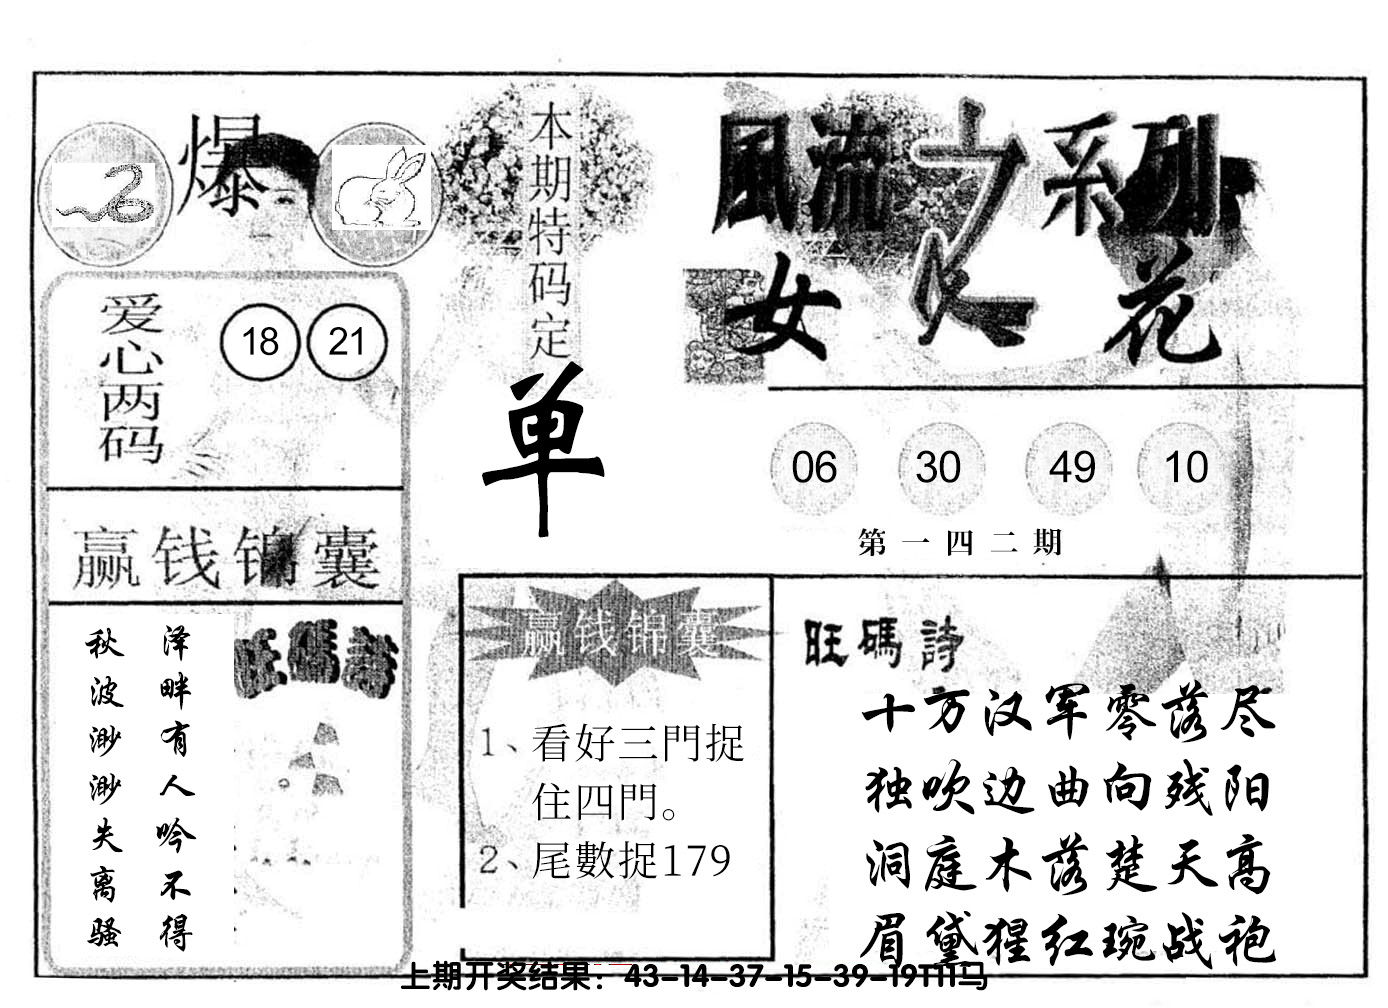 爆
爱心两码
18 21
赢钱锦囊
泽畔有人吟不得
秋波渺渺失离骚
旺碼詩
本期特码定
单
赢钱锦囊
1、看好三門捉
住四門。
2、尾數捉179
風流之系列
女人花
06 30 49 10
第一四二期
旺碼詩
十方汉军零落尽
独吹边曲向残阳
洞庭木落楚天高
眉黛猩红琬战袍
上期开奖结果：43-14-37-15-39-19T11马